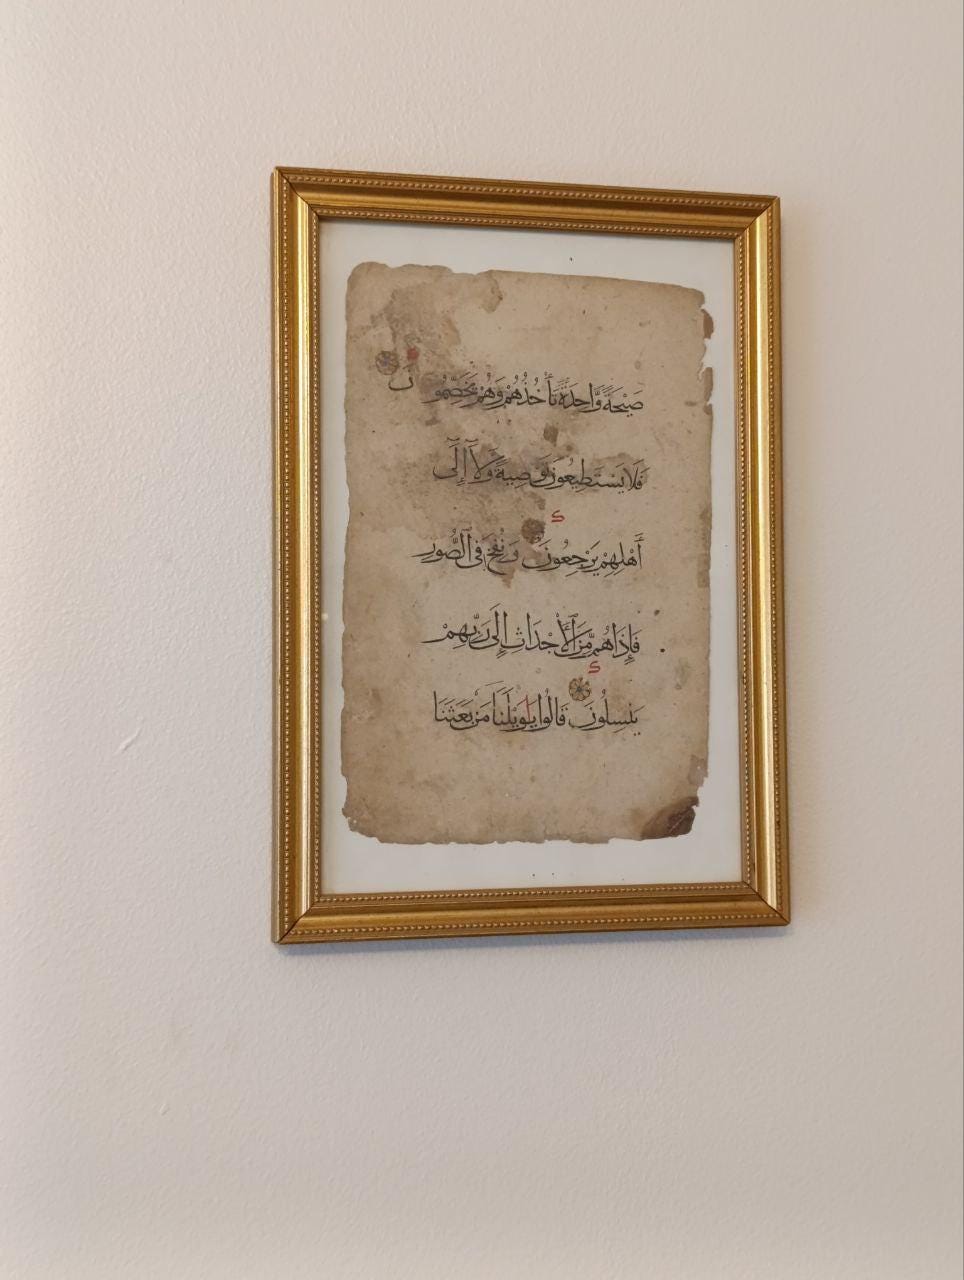 صَيْحَةً وَّاحِدَةً تَأْخُذُهُمْ وَهُمْ يَخِصِّمُونَ
فَلَا يَسْتَطِيعُونَ تَوْصِيَةً وَلَآ إِلَىٰٓ
أَهْلِهِمْ يَرْجِعُونَ وَنُفِخَ فِى ٱلصُّورِ
فَإِذَا هُم مِّنَ ٱلْأَجْدَاثِ إِلَىٰ رَبِّهِمْ
يَنسِلُونَ قَالُوا يَاوَيْلَنَا مَنۢ بَعَثَنَا